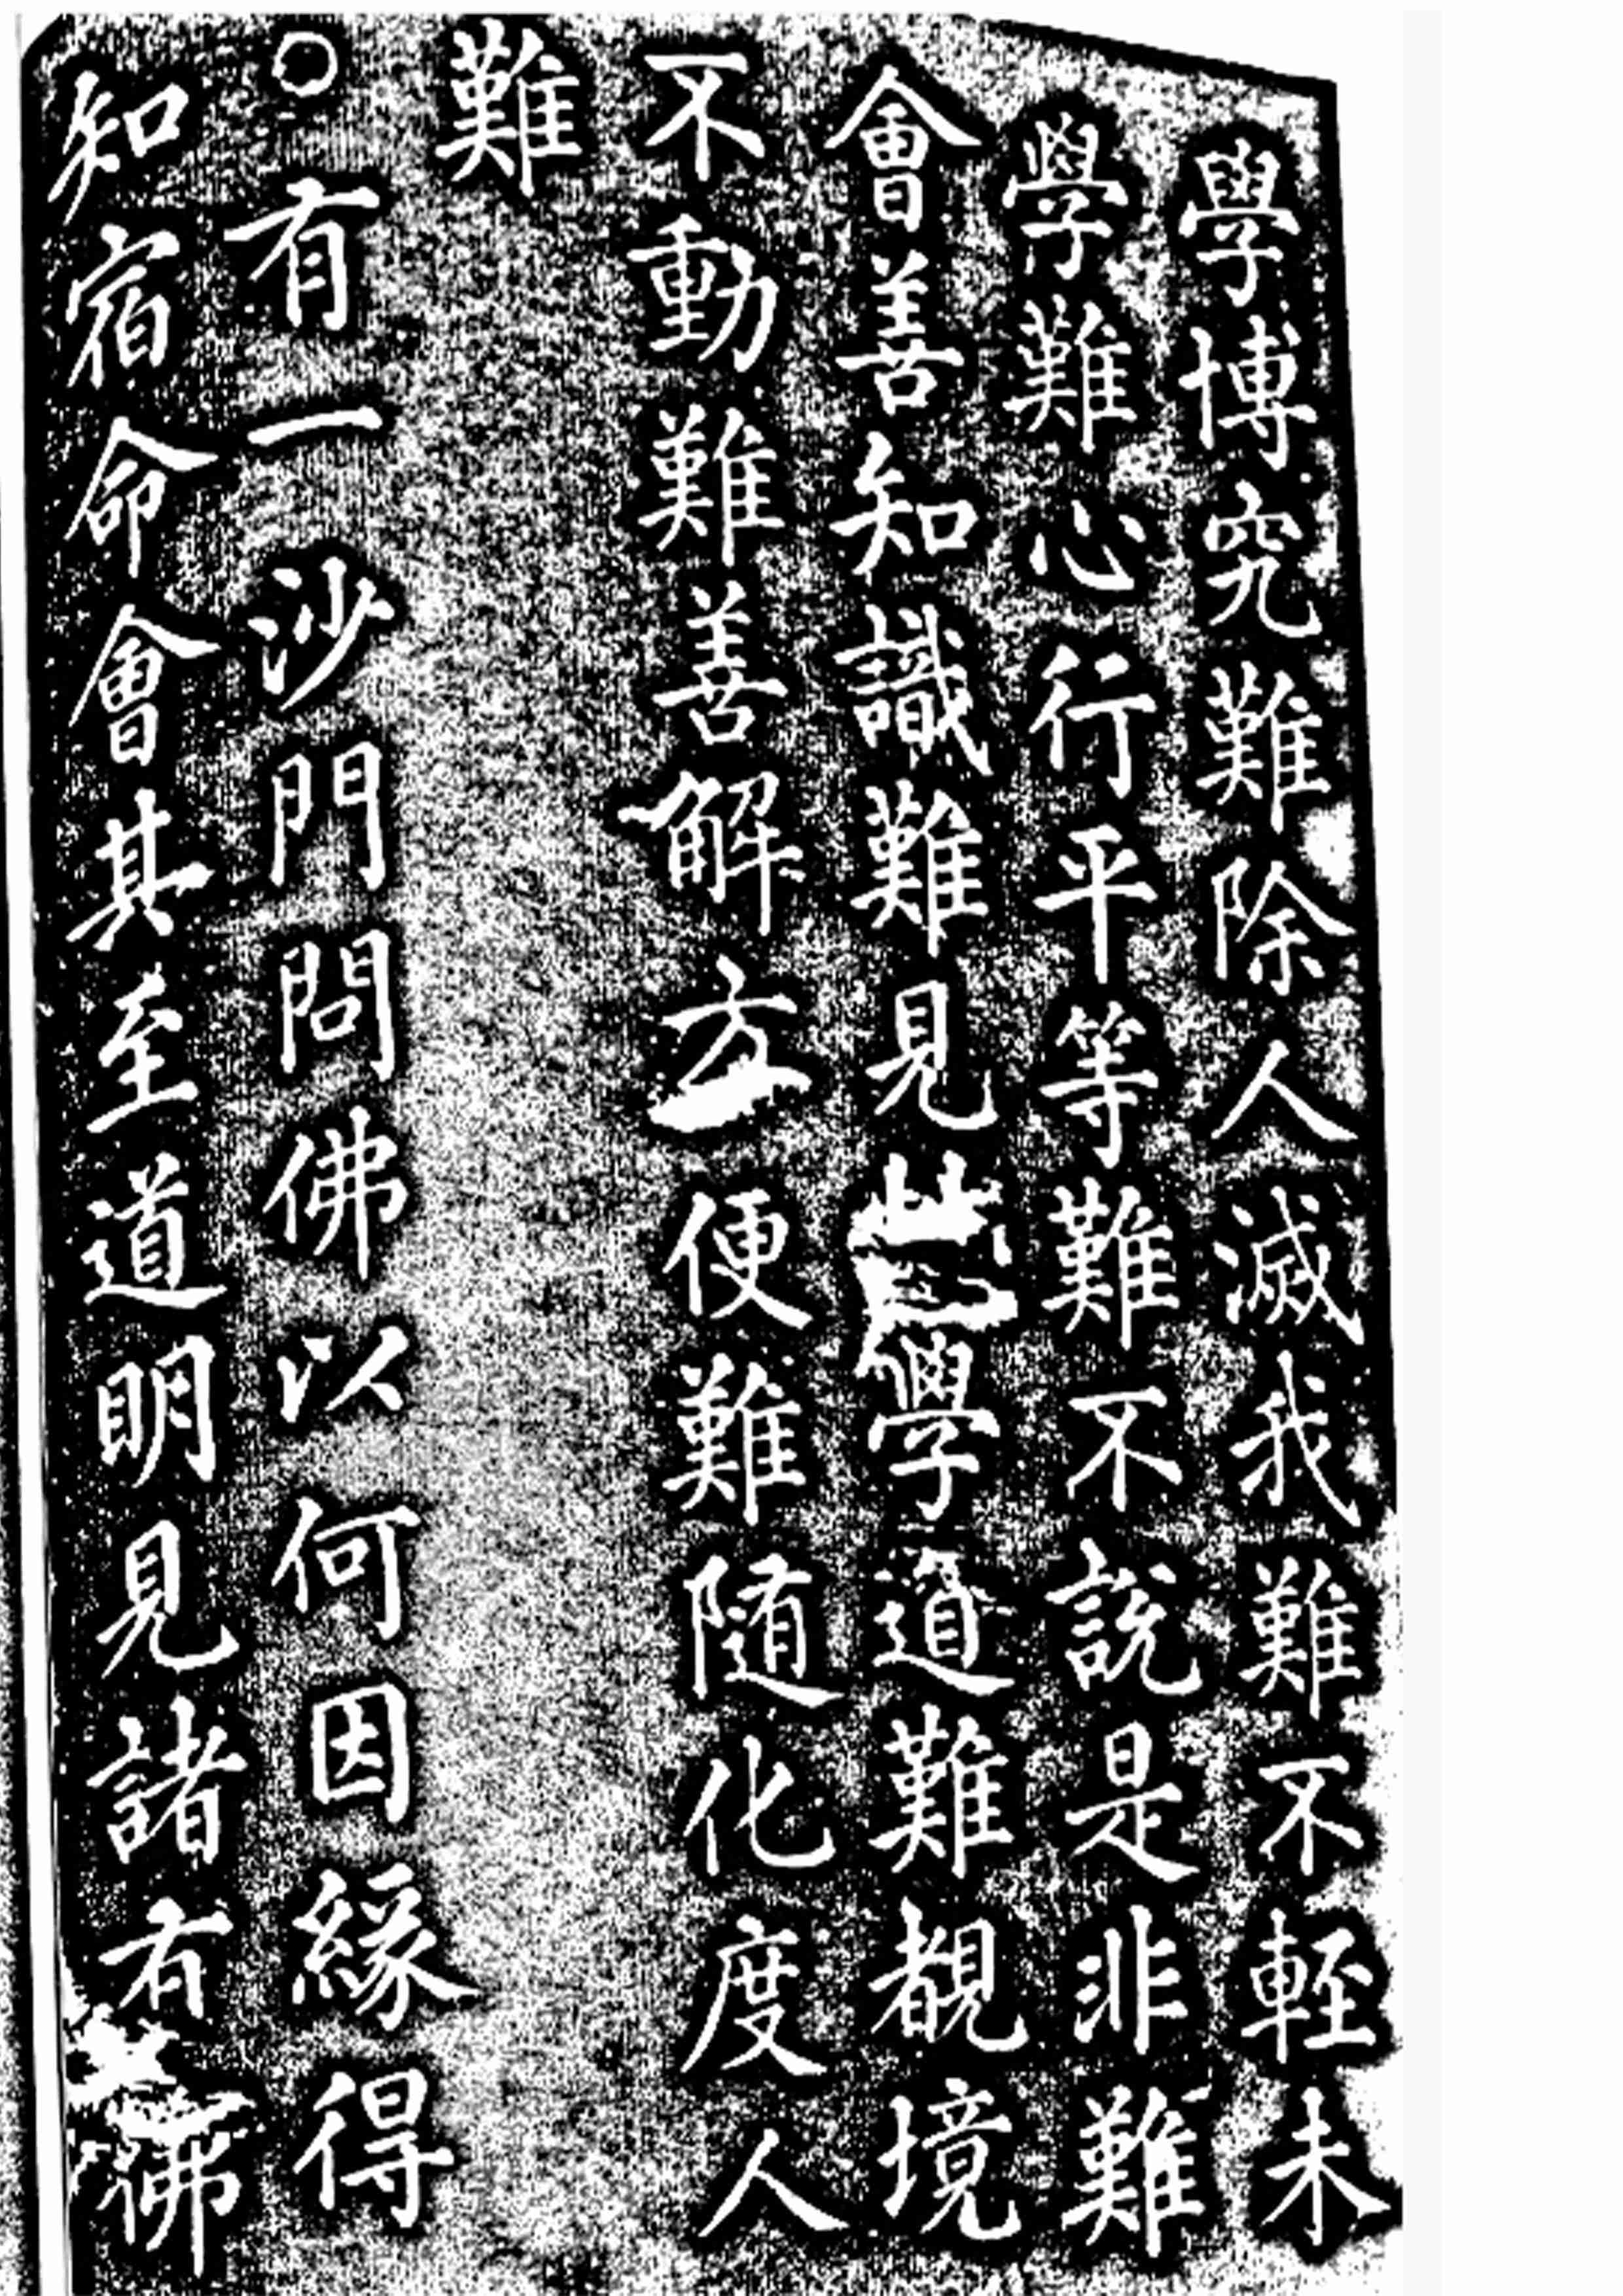 學博究難除人滅我難不輕未
學難心行平等難不說是非難
會善知識難見學道難覩境
不動難善解方便難隨化度人
難
○有一沙門問佛以何因緣得
知宿命會其至道明見諸有佛